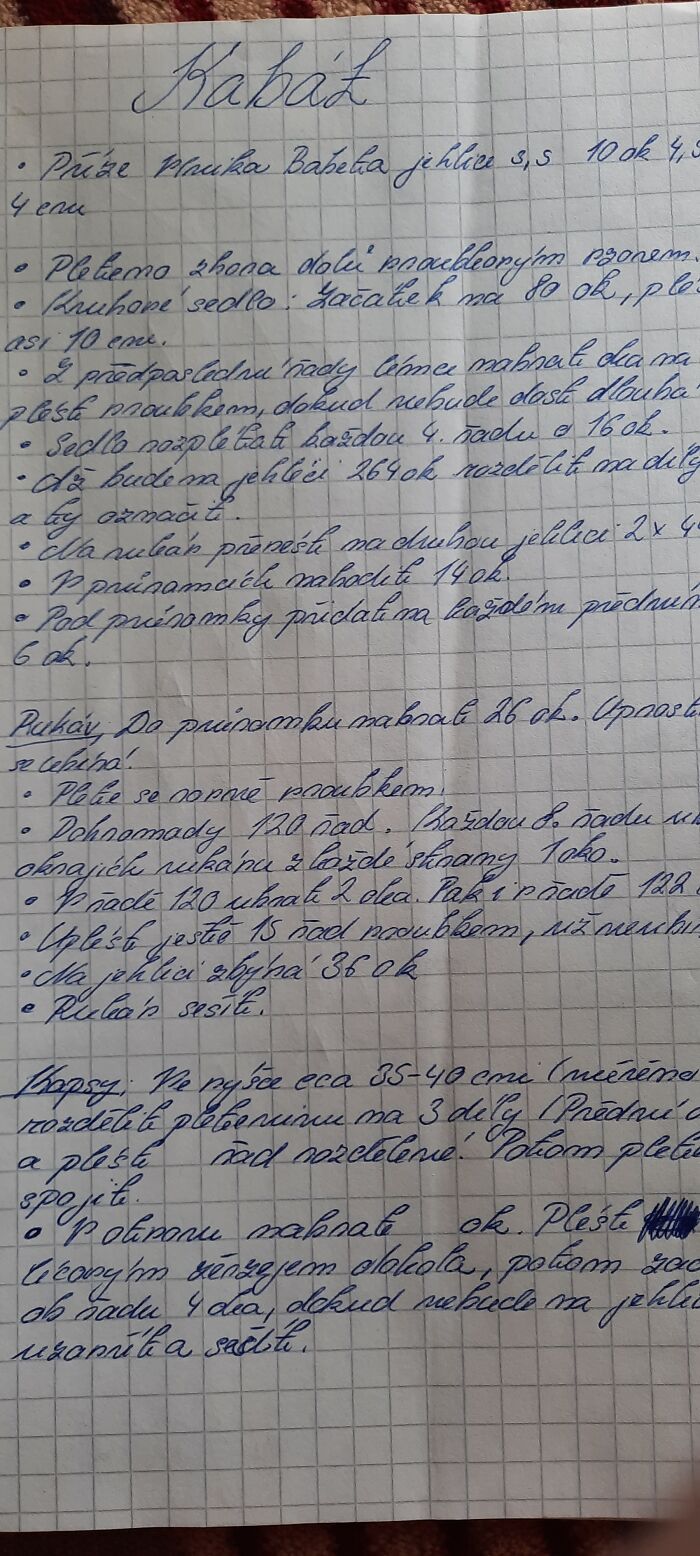 Kabát
• Příze Vlnika Babeta jehlice 5,5 10 ok 4,5
4 cm
• Pleteno zhora dolů proubkovým vzorem.
• Kruhové sedlo: Začátek na 80 ok, plé
asi 10 cm.
• Z předposlední řady límce nabrat oka na
plést proubkem, dokud nebude dosti dlouhá
• Sedlo rozpletat každou 4. řadu o 16 ok.
• Až bude na jehlici 264 ok rozdělit na díly
a ty označit.
• Na rukáv přenést na druhou jehlici 2 x 4
• V průramcích nahodit 14 ok.
• Pod průramky přidat na každém přední
6 ok.
Rukáv, Do průramku nabrat 26 ok. Uprost
se ubírá!
• Plete se rovně proubkem.
• Dohromady 120 řad. Každou 8. řadu u
okrajích rukávu z každé strany 1 oko.
• V řadě 120 ubrat 2 oka. Pak i v řadě 122.
• Uplést ještě 15 řad proubkem, už neubír
• Na jehlici zbývá 36 ok
• Rukáv sešít.
Kapsy: Ve výšce cca 35-40 cm (měřena
rozdělit pleteninu na 3 díly (Přední d
a plést řad rozdělené! Potom plete
spojit.
• V otvoru nabrat ok. Plést
lícovým žerzejem dokola, potom zač
ob řadu 4 oka, dokud nebude na jehli
uzavřít a sešít.